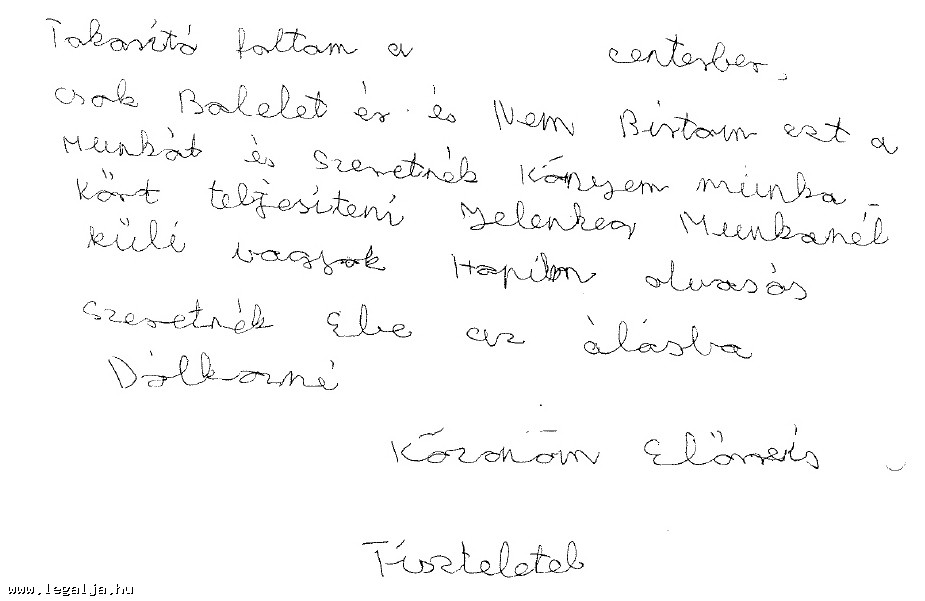 Takasító foltam a centerber.
csak Balelet ér és Nem Birtam ezt a
Munkát és szeretnék Kőnyem munka
kőrt teljesíteni Jelenleg Munkanél
küli vagyok Hapim olvasás
szeretnék Ebe az álásba
Dólkozné
Kőzonöm Elöreis
Tiszteleteb
www.legalja.hu